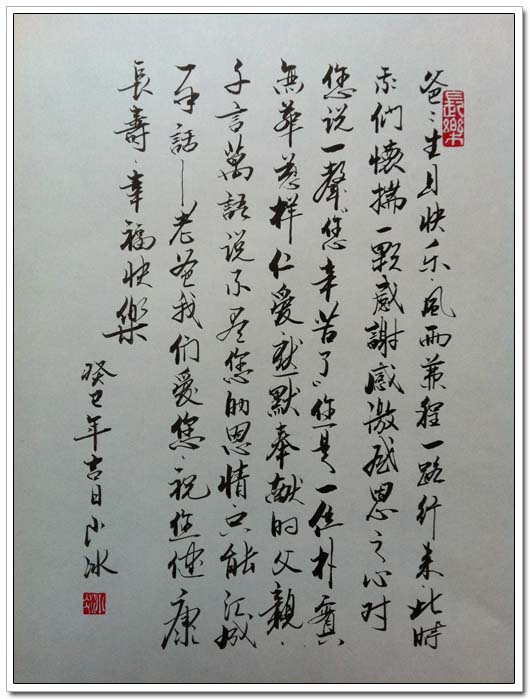 長樂
爸〻生日快乐、風雨兼程一路行来、此時
我們懷揣一顆感謝感激感恩之心对
您说一聲“您辛苦了”您是一位朴實
無華慈祥仁愛默默奉献的父親、
千言萬語说不尽您的恩情只能汇成
一句話—老爸我们愛您、祝您健康
長壽、幸福快樂
癸巳年吉日小冰